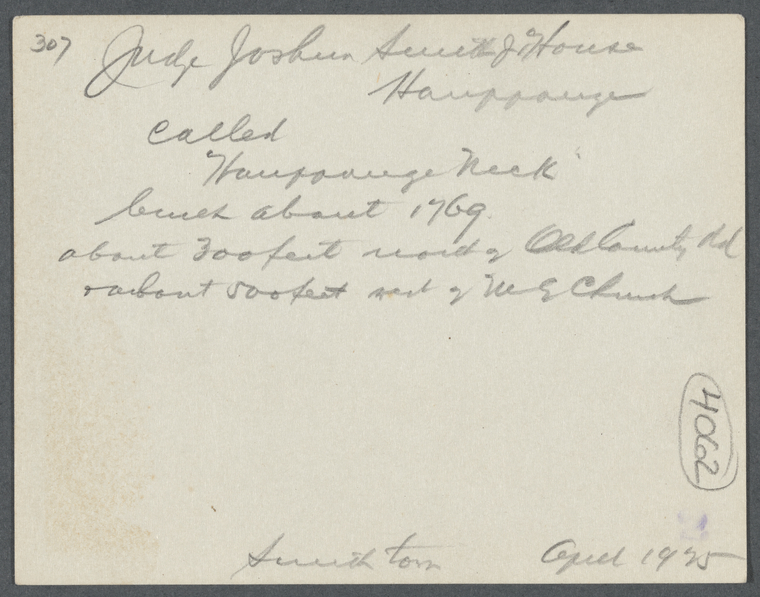 307 Judge Joshua Smith J House
Hauppauge
called
"Hauppauge Neck"
built about 1769
about 300 feet north of Old County Rd
& about 500 feet west of M E Church
4062
Smithtown April 1925